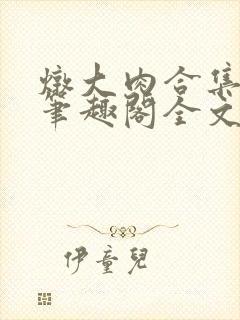 燉大肉合集
筆趣閣全文
伊童兒